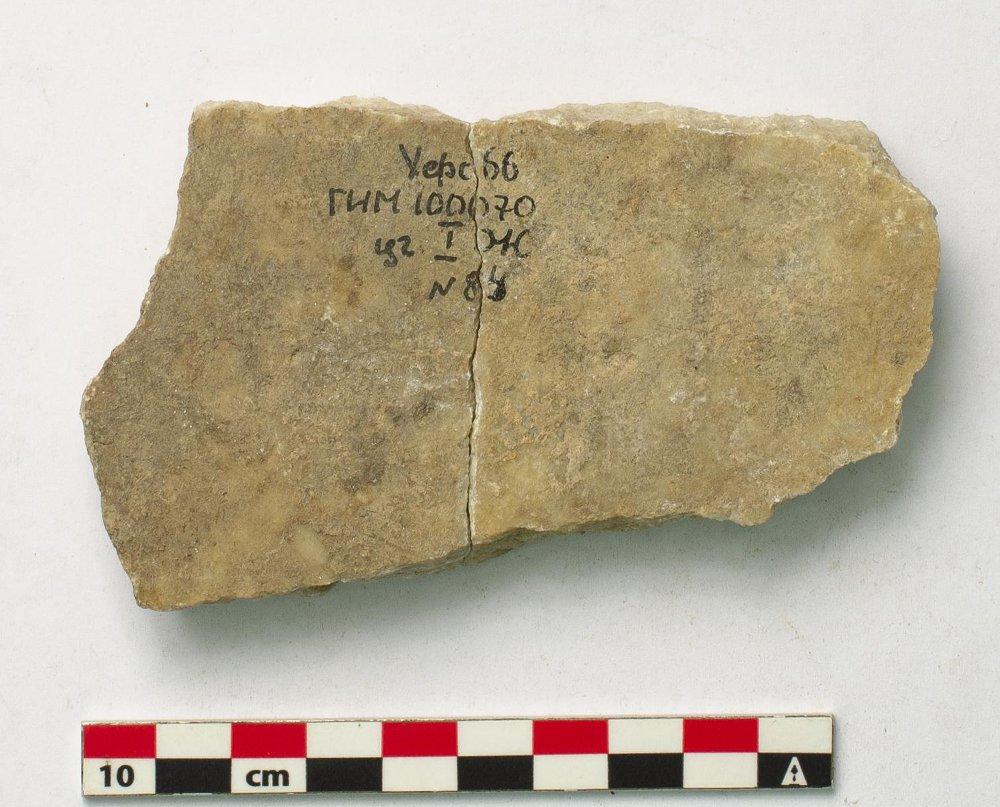 Херс 66
ГИМ 100070
цг I Ж
N 84
10 cm
A